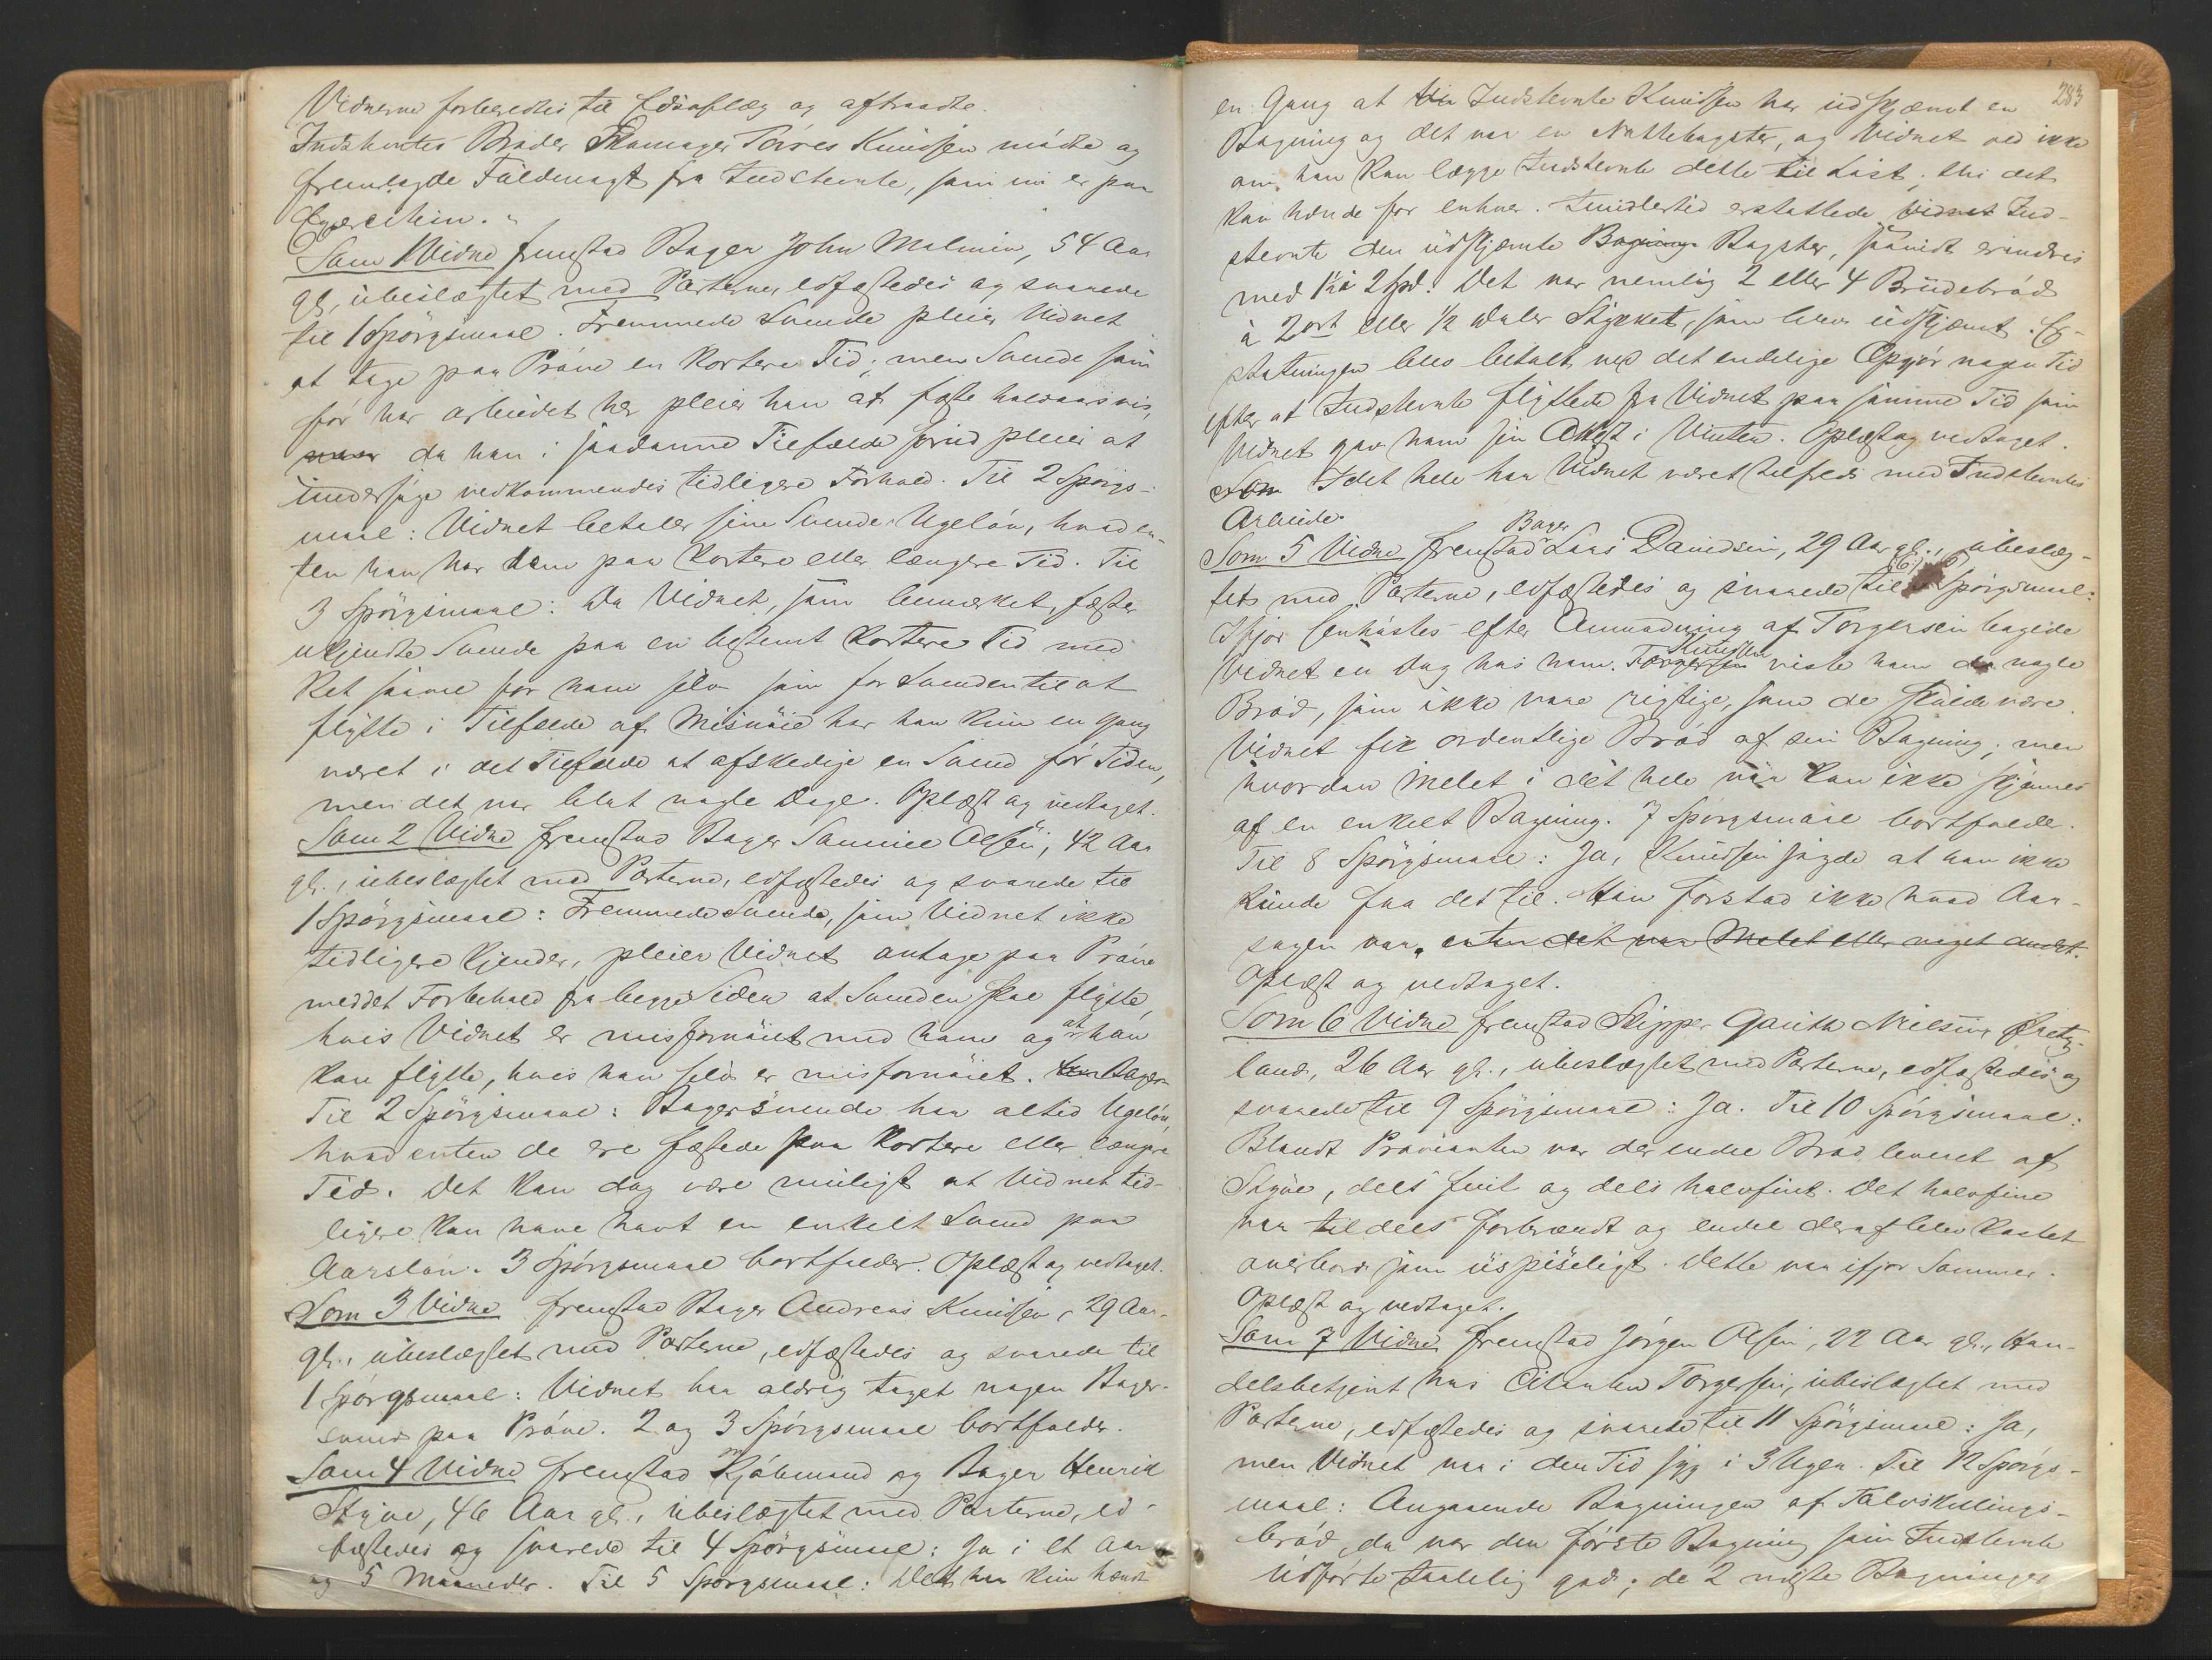 Vidnerne forberedtes til Edsaflæg og aftraadte.
Indstevntes Broder Skomager Törres Knudsen mödte og
fremlagde Fuldmagt fra Indstevnte, som nu er paa
Exercitien.
Som 1 Vidne fremstod Bager John Malmin, 54 Aar
gl., ubeslægtet med Parterne, edfæstedes og svarede
til 1 Spörgsmaal. Fremmede Svende pleier Vidnet
at tage paa Pröve en kortere Tid; men Svende som
för har arbeidet her pleier han at fæste halvaarsvis,
da han i saadanne Tilfælde forud pleier at
undersöge vedkommendes tidligere Forhold. Til 2 Spörgs-
maal: Vidnet betaler sine Svende Ugelön, hvaden-
ten han har dem paa kortere eller længere Tid. Til
3 Spörgsmaal: Da Vidnet, som bemærket, fæster
ukjendte Svende paa en bestemt kortere Tid med
Ret saavel for ham selv som for Svenden til at
flytte i Tilfælde af Misnöie har han kun en Gang
været i det Tilfælde at afskedige en Svend för Tiden,
men det var blot nogle Dage. Oplæst og vedtaget.
Som 2 Vidne fremstod Bager Samuel Olsen, 42 Aar
gl., ubeslægtet med Parterne, edfæstedes og svarede til
1 Spörgsmaal: Fremmede Svende, som Vidnet ikke
tidligere kjender, pleier Vidnet antage paa Pröve
med det Forbehold fra begge Sider at Svenden skal flytte,
hvis Vidnet er misfornöiet med ham og at han
kan flytte, hvis han selv er misfornöiet.
Til 2 Spörgsmaal: Bagersvende har altid Ugelön,
hvad enten de ere fæstede paa kortere eller længere
Tid. Det kan dog være muligt at Vidnet tid-
ligere kan have havt en enkelt Svend paa
Aarslön. 3 Spörgsmaal bortfalder. Oplæst og vedtaget.
Som 3 Vidne fremstod Bager Andreas Knudsen, 29 Aar
gl., ubeslægtet med Parterne, edfæstedes og svarede til
1 Spörgsmaal: Vidnet har aldrig taget nogen Bager-
svend paa Pröve. 2 og 3 Spörgsmaal bortfalder.
Som 4 Vidne fremstod Kjöbmand og Bager Henrik
Skjöve, 46 Aar gl., ubeslægtet med Parterne, ed-
fæstedes og svarede til 4 Spörgsmaal: Ja i et Aar
og 5 Maaneder. Til 5 Spörgsmaal: Det har kun hændt
283
en Gang at Indstevnte Knudsen har udskjæmt en
Bagning og det var en Nattebagster, og Vidnet ved ikke
om han kan lægge Indstevnte dette til Last, thi det
kan hænde for enhver. Imidlertid erstattede Ind-
stevnte den udskjæmte Bagning Bagster, saavidt erindres
med 1½ à 2 Spd. Det var nemlig 2 eller 4 Brudebröd
à 2 ort eller ½ Daler Stykket, som blev udskjæmt. Er-
statningen blev betalt ved det endelige Opgjör nogen Tid
efter at Indstevnte flyttede fra Vidnet paa samme Tid som
Vidnet gav ham sin Attest i Vinter. Oplæst og vedtaget.
Som I det hele har Vidnet været tilfreds med Indstevntes
Arbeide.
Som 5 Vidne fremstod Bager Lars Danielsen, 29 Aar gl., ubeslæg-
tet med Parterne, edfæstedes og svarede til 6 Spörgsmaal:
Ifjor senhöstes efter Anmodning af Torgersen bagede
Vidnet en Dag hos ham. Torgersen Knudsen viste ham da nogle
Bröd, som ikke vare rigtige, som de skulde være.
Vidnet fik ordentlige Bröd af sin Bagning; men
hvordan Melet i det hele var kan ikke skjönnes
af en enkelt Bagning. 7 Spörgsmaal bortfalder.
Til 8 Spörgsmaal: Ja, Knudsen sagde at han ikke
kunde faa det til. Han forstod ikke hvad Aar-
sagen var, enten det var Melet eller noget andet.
Oplæst og vedtaget.
Som 6 Vidne fremstod Skipper Gauthe Nielsen
land, 26 Aar gl., ubeslægtet med Parterne, edfæstedes og
svarede til 9 Spörgsmaal: Ja. Til 10 Spörgsmaal:
Blandt Provianten var der endel Bröd, leveret af
Skjöve, dels fint og dels halvfint. Det halvfine
var tildels forbrændt og endel deraf blev kastet
overbord som uspiseligt. Dette var ifjor Sommer.
Oplæst og vedtaget.
Som 7 Vidne fremstod Jörgen Olsen, 22 Aar gl., Han-
delsbetjent hos Citanten Torgersen, ubeslægtet med
Parterne, edfæstedes og svarede til 11 Spörgsmaal: Ja,
men Vidnet var i den Tid syg i 3 Uger. Til 12 Spörgs-
maal: Angaaende Bagningen af Tolvskillings-
bröd, da var den förste Bagning som Indstevnte
udförte taalelig god; de 2 næste Bagninger